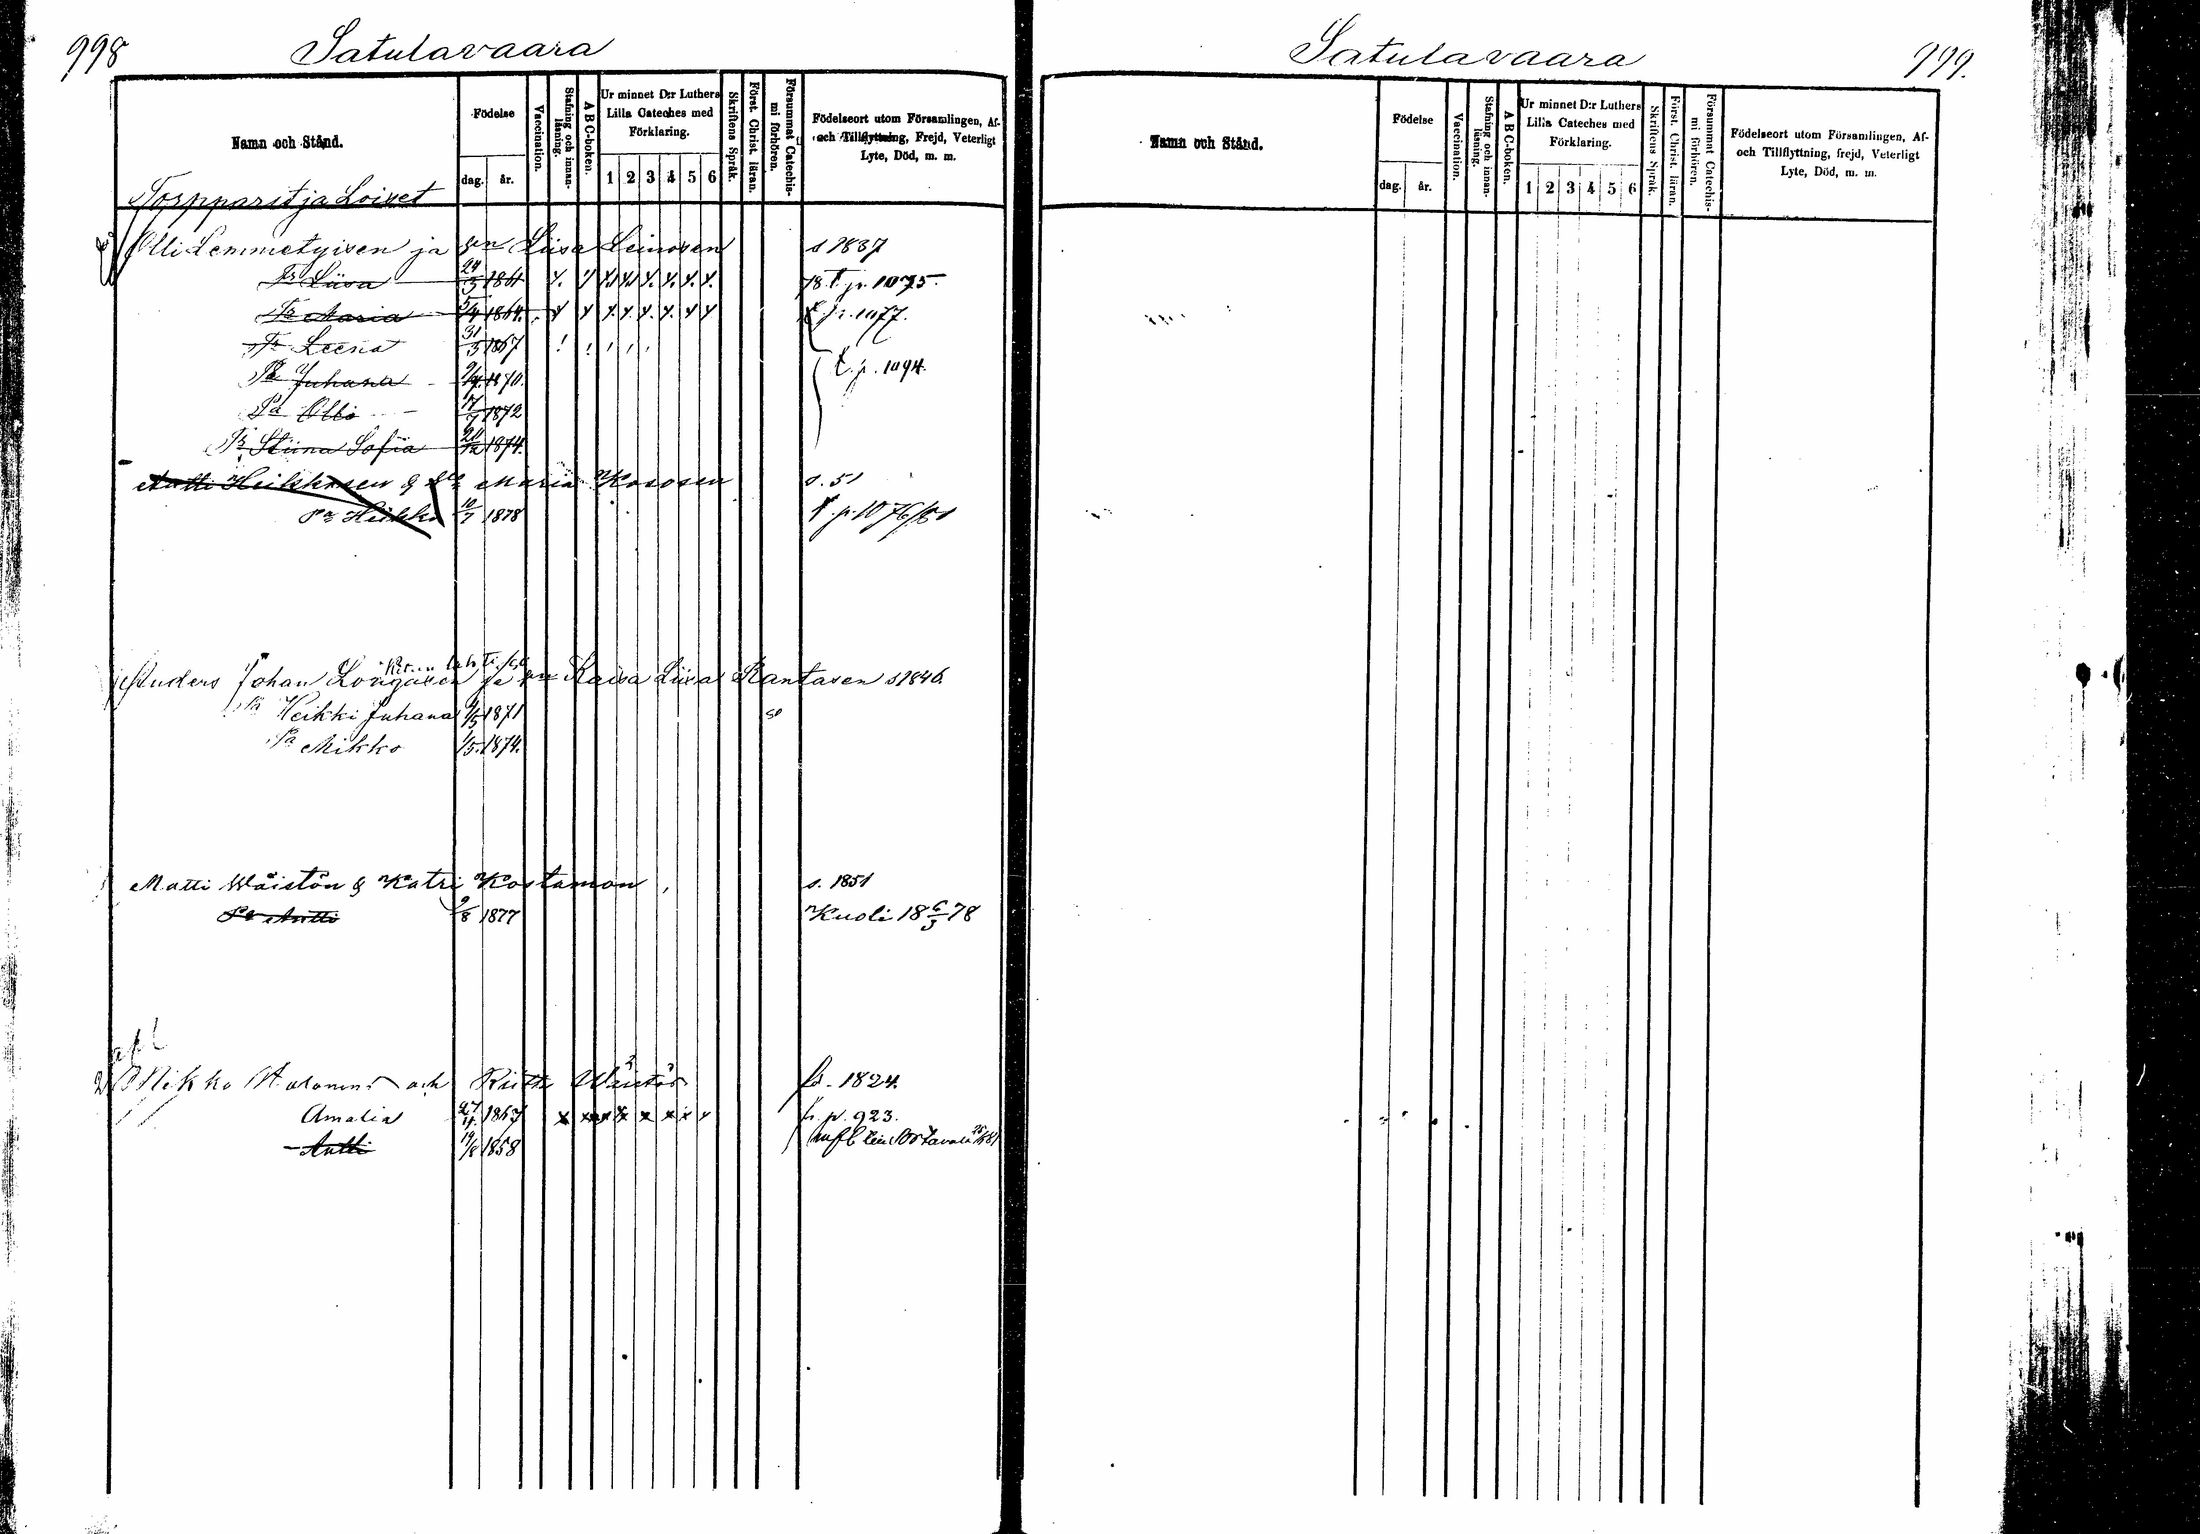 998 Satulavaara
Namn och Stånd.
Födelse
dag. år.
Vaccination.
Stafning och innanläsning.
ABC-boken.
Ur minnet D:r Luthers Lilla Cateches med Förklaring.
1 2 3 4 5 6
Skriftens Språk.
Först. Christ. läran.
Försummat Catechismi förhören.
Födelseort utom Församlingen, Af- och Tillflyttning, Frejd, Veterligt Lyte, Död, m. m.
Torpparit ja Loiset
Olli Lemmetyisen ja Liisa Leinosen s 1837
Tr Liisa 24/3 1861 t. p. 1075.
Tr Maria 5/4 1864. t. p. 1077.
Tr Leena 31/3 1867 t. p. 1094.
Pa Juhana 1870.
Pa Olli 17/7 1872
Tr Stiina Sofia 21/12 1874.
Antti Heikkisen & Maria Kososen s. 51
Pa Heikki 10/7 1878 t. p. 1076/81
Anders Johan ja Kaisa Liisa Rantasen s 1846.
Pa Heikki Juhana 1871
Pa Mikko 1/5. 1874.
Matti Wäistön & Katri Kostamon s. 1851
Pa Antti 9/8 1877 Kuoli 18 6/3 78
Mikko och Riitta Wäistös 1824.
Amalia 27/4 1867 p. 923.
Antti 14/8 1858
Satulavaara 999.
Namn och Stånd.
Födelse
dag. år.
Vaccination.
Stafning och innanläsning.
ABC-boken.
Ur minnet D:r Luthers Lilla Cateches med Förklaring.
1 2 3 4 5 6
Skriftens Språk.
Först. Christ. läran.
Försummat Catechismi förhören.
Födelseort utom Församlingen, Af- och Tillflyttning, frejd, Veterligt Lyte, Död, m. m.